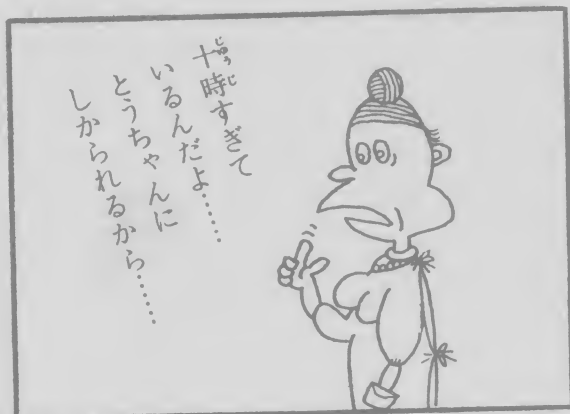 十時すぎて
いるんだよ……
とうちゃんに
しかられるから……